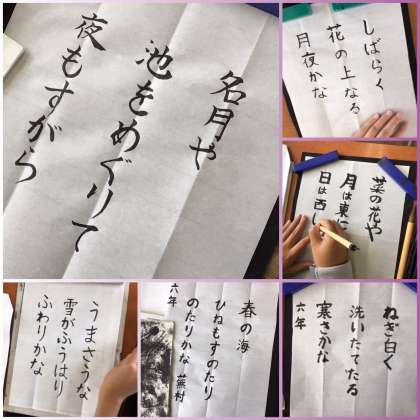 名月や
池をめぐりて
夜もすがら
しばらく
花の上なる
月夜かな
菜の花や
月は東に
日は西に
うまさうな
雪がふうはり
ふわりかな
春の海
ひねもすのたり
のたりかな 蕪村
六年
ねぎ白く
洗いたてたる
寒さかな
六年